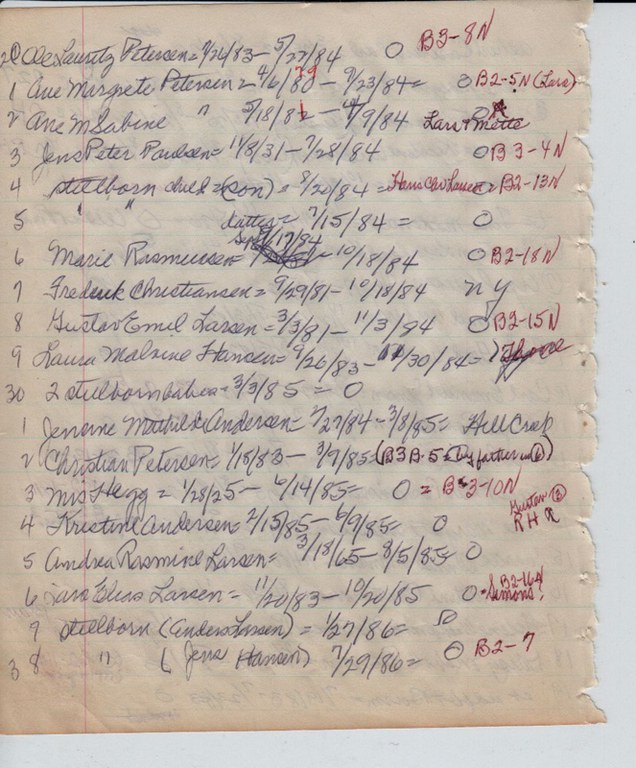 20 Ole Lauritz Petersen = 7/26/83 – 5/27/84 O B3-8N
1 Ane Margrete Petersen = 4/6/80 79 – 9/23/84 = O B2-5N (Lars)
2 Ane M Sabine " 5/18/82 1 – 4/9/84 Lars + Mette
3 Jens Peter Paulsen = 11/8/31 – 7/28/84 O B3-4N
4 stillborn child = (son) = 8/20/84 = Hans Chr Larsen = B2-13N
5 " " datter = 7/15/84 = O
Sept 17/84
6 Marie Rasmussen = – 10/18/84 O B2-18N
7 Frederik Christiansen = 9/29/81 – 10/18/84 n y
8 Gustav Emil Larsen = 3/3/81 – 11/3/84 O B2-15N
9 Laura Malvine Hansen = 9/26/83 – 11/30/84 =
30 2 stillborn babies = 3/3/85 = O
1 Jensine Mathilde Andersen = 7/27/84 – 3/8/85 = Hill Creek
2 Christian Petersen = 1/15/83 – 3/7/85 = (B3 B-5 = by father in 6)
3 Mrs Hegg = 1/28/25 – 6/14/85 = O = B3-10N
Gustav 3
4 Kristine Andersen = 2/15/85 – 6/9/85 = O R H R
5 Andrea Rasmine Larsen = 3/18/65 – 8/5/85 = O
6 Lars Elias Larsen = 11/20/83 – 10/20/85 O B2-16N
Simons!
7 stillborn (Anders Larsen) = 1/27/86 = O
38 " ( Jens Hansen) 7/29/86 = O B2-7